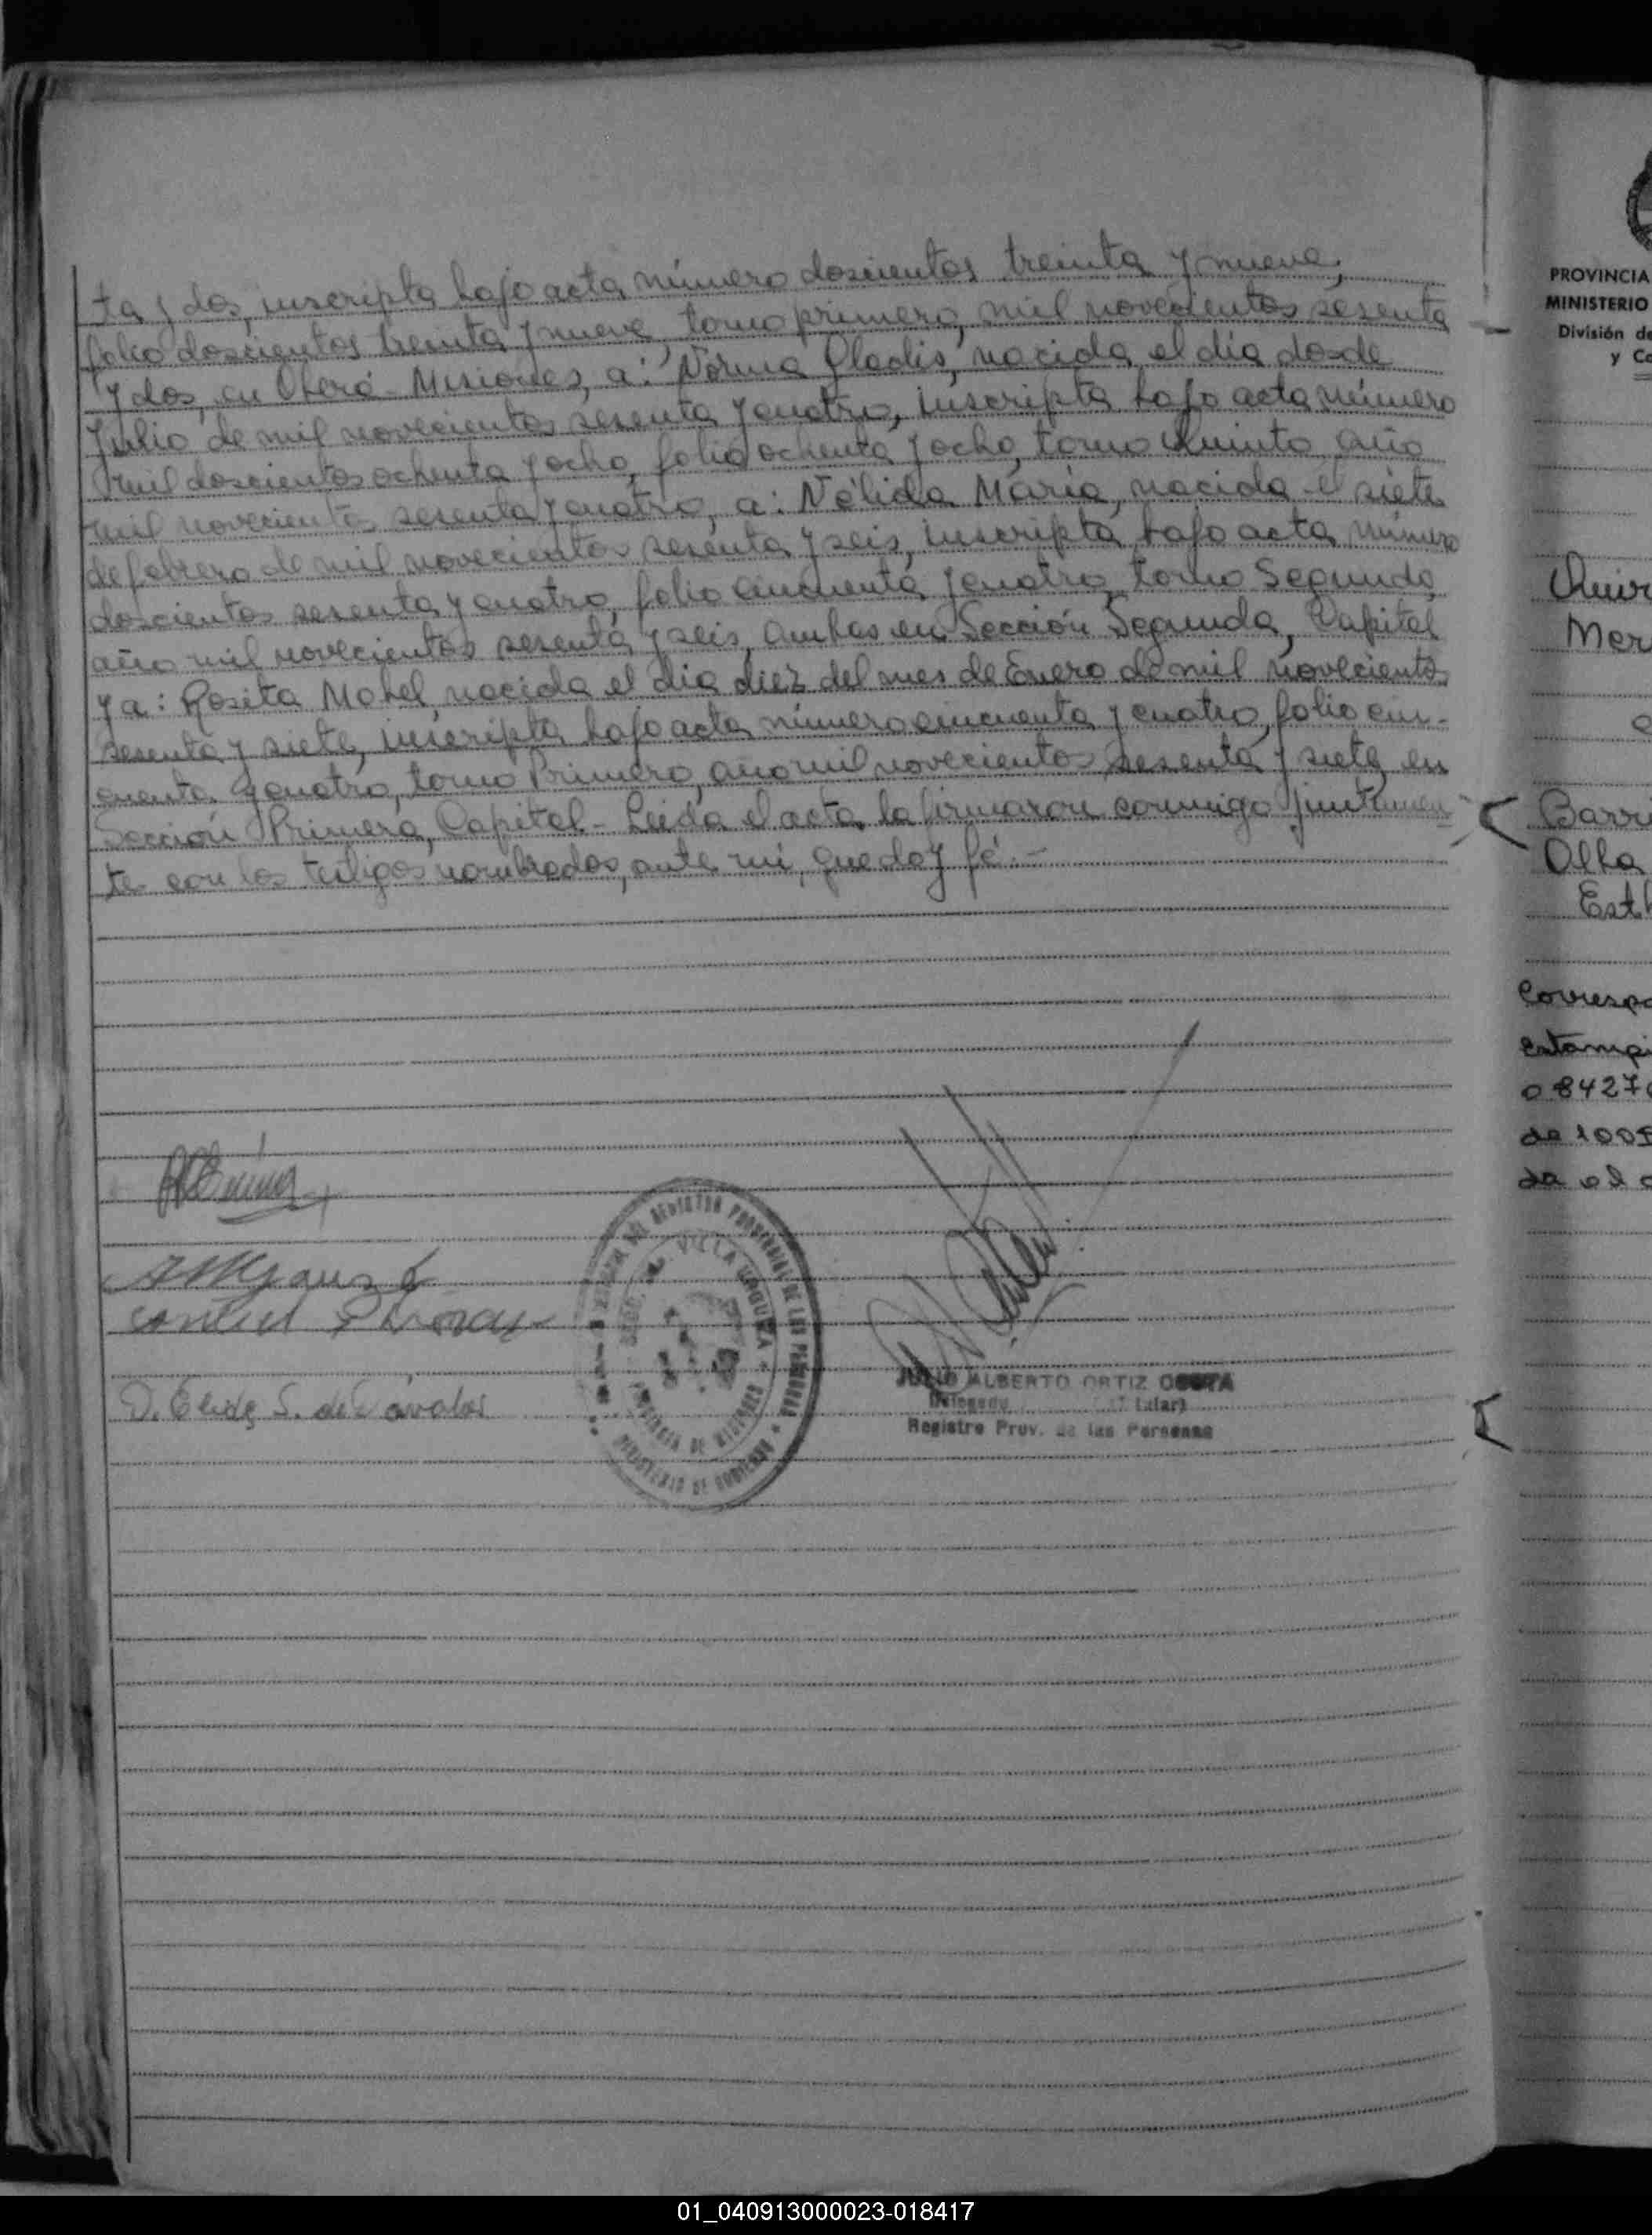 ta y dos, inscripta bajo acta número doscientos treinta y nueve,
folio doscientos treinta y nueve, tomo primero, mil novecientos sesenta
y dos, en Oberá - Misiones, a: Norma Gladis, nacida el día dos de
Julio de mil novecientos sesenta y cuatro, inscripta bajo acta número
mil doscientos ochenta y ocho, folio ochenta y ocho, tomo Quinto año
mil novecientos sesenta y cuatro, a: Nélida María, nacida el siete
de febrero de mil novecientos sesenta y seis, inscripta bajo acta número
doscientos sesenta y cuatro, folio cincuenta y cuatro, tomo Segundo,
año mil novecientos sesenta y seis, ambas en Sección Segunda, Capital
y a: Rosita Mabel, nacida el día diez del mes de Enero de mil novecientos
sesenta y siete, inscripta bajo acta número cincuenta y cuatro, folio cin-
cuenta y cuatro, tomo Primero, año mil novecientos sesenta y siete, en
Sección Primera, Capital - Leída el acta, la firmaron conmigo juntamen
te con los testigos nombrados, ante mí, que doy fé.-
D. Elide S. de Dávalos
REGISTRO PROVINCIAL DE LAS PERSONAS
VILLA URQUIZA
PROVINCIA DE MISIONES
MINISTERIO DE GOBIERNO
JULIO ALBERTO ORTIZ COSTA
Delegado
Registro Prov. de las Personas
PROVINCIA
MINISTERIO
División de
y Co
Quir
Mer
Barr
Olga
Est
Corresp
estampi
08427
de 100
da el
01_040913000023-018417